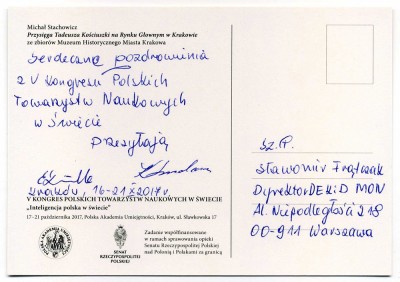 Michał Stachowicz
Przysięga Tadeusza Kościuszki na Rynku Głównym w Krakowie
ze zbiorów Muzeum Historycznego Miasta Krakowa
Serdeczne pozdrowienia
z V Kongresu Polskich
Towarzystw Naukowych
w Świecie
przesyłają
Kraków, 16-21 X 2017 r.
V KONGRES POLSKICH TOWARZYSTW NAUKOWYCH W ŚWIECIE
"Inteligencja polska w świecie"
17-21 października 2017, Polska Akademia Umiejętności, Kraków, ul. Sławkowska 17
SENAT
RZECZYPOSPOLITEJ
POLSKIEJ
Zadanie współfinansowane
w ramach sprawowania opieki
Senatu Rzeczypospolitej Polskiej
nad Polonią i Polakami za granicą
Sz. P.
Sławomir Frątczak
Dyrektor DEKiD MON
Al. Niepodległości 218
00-911 Warszawa